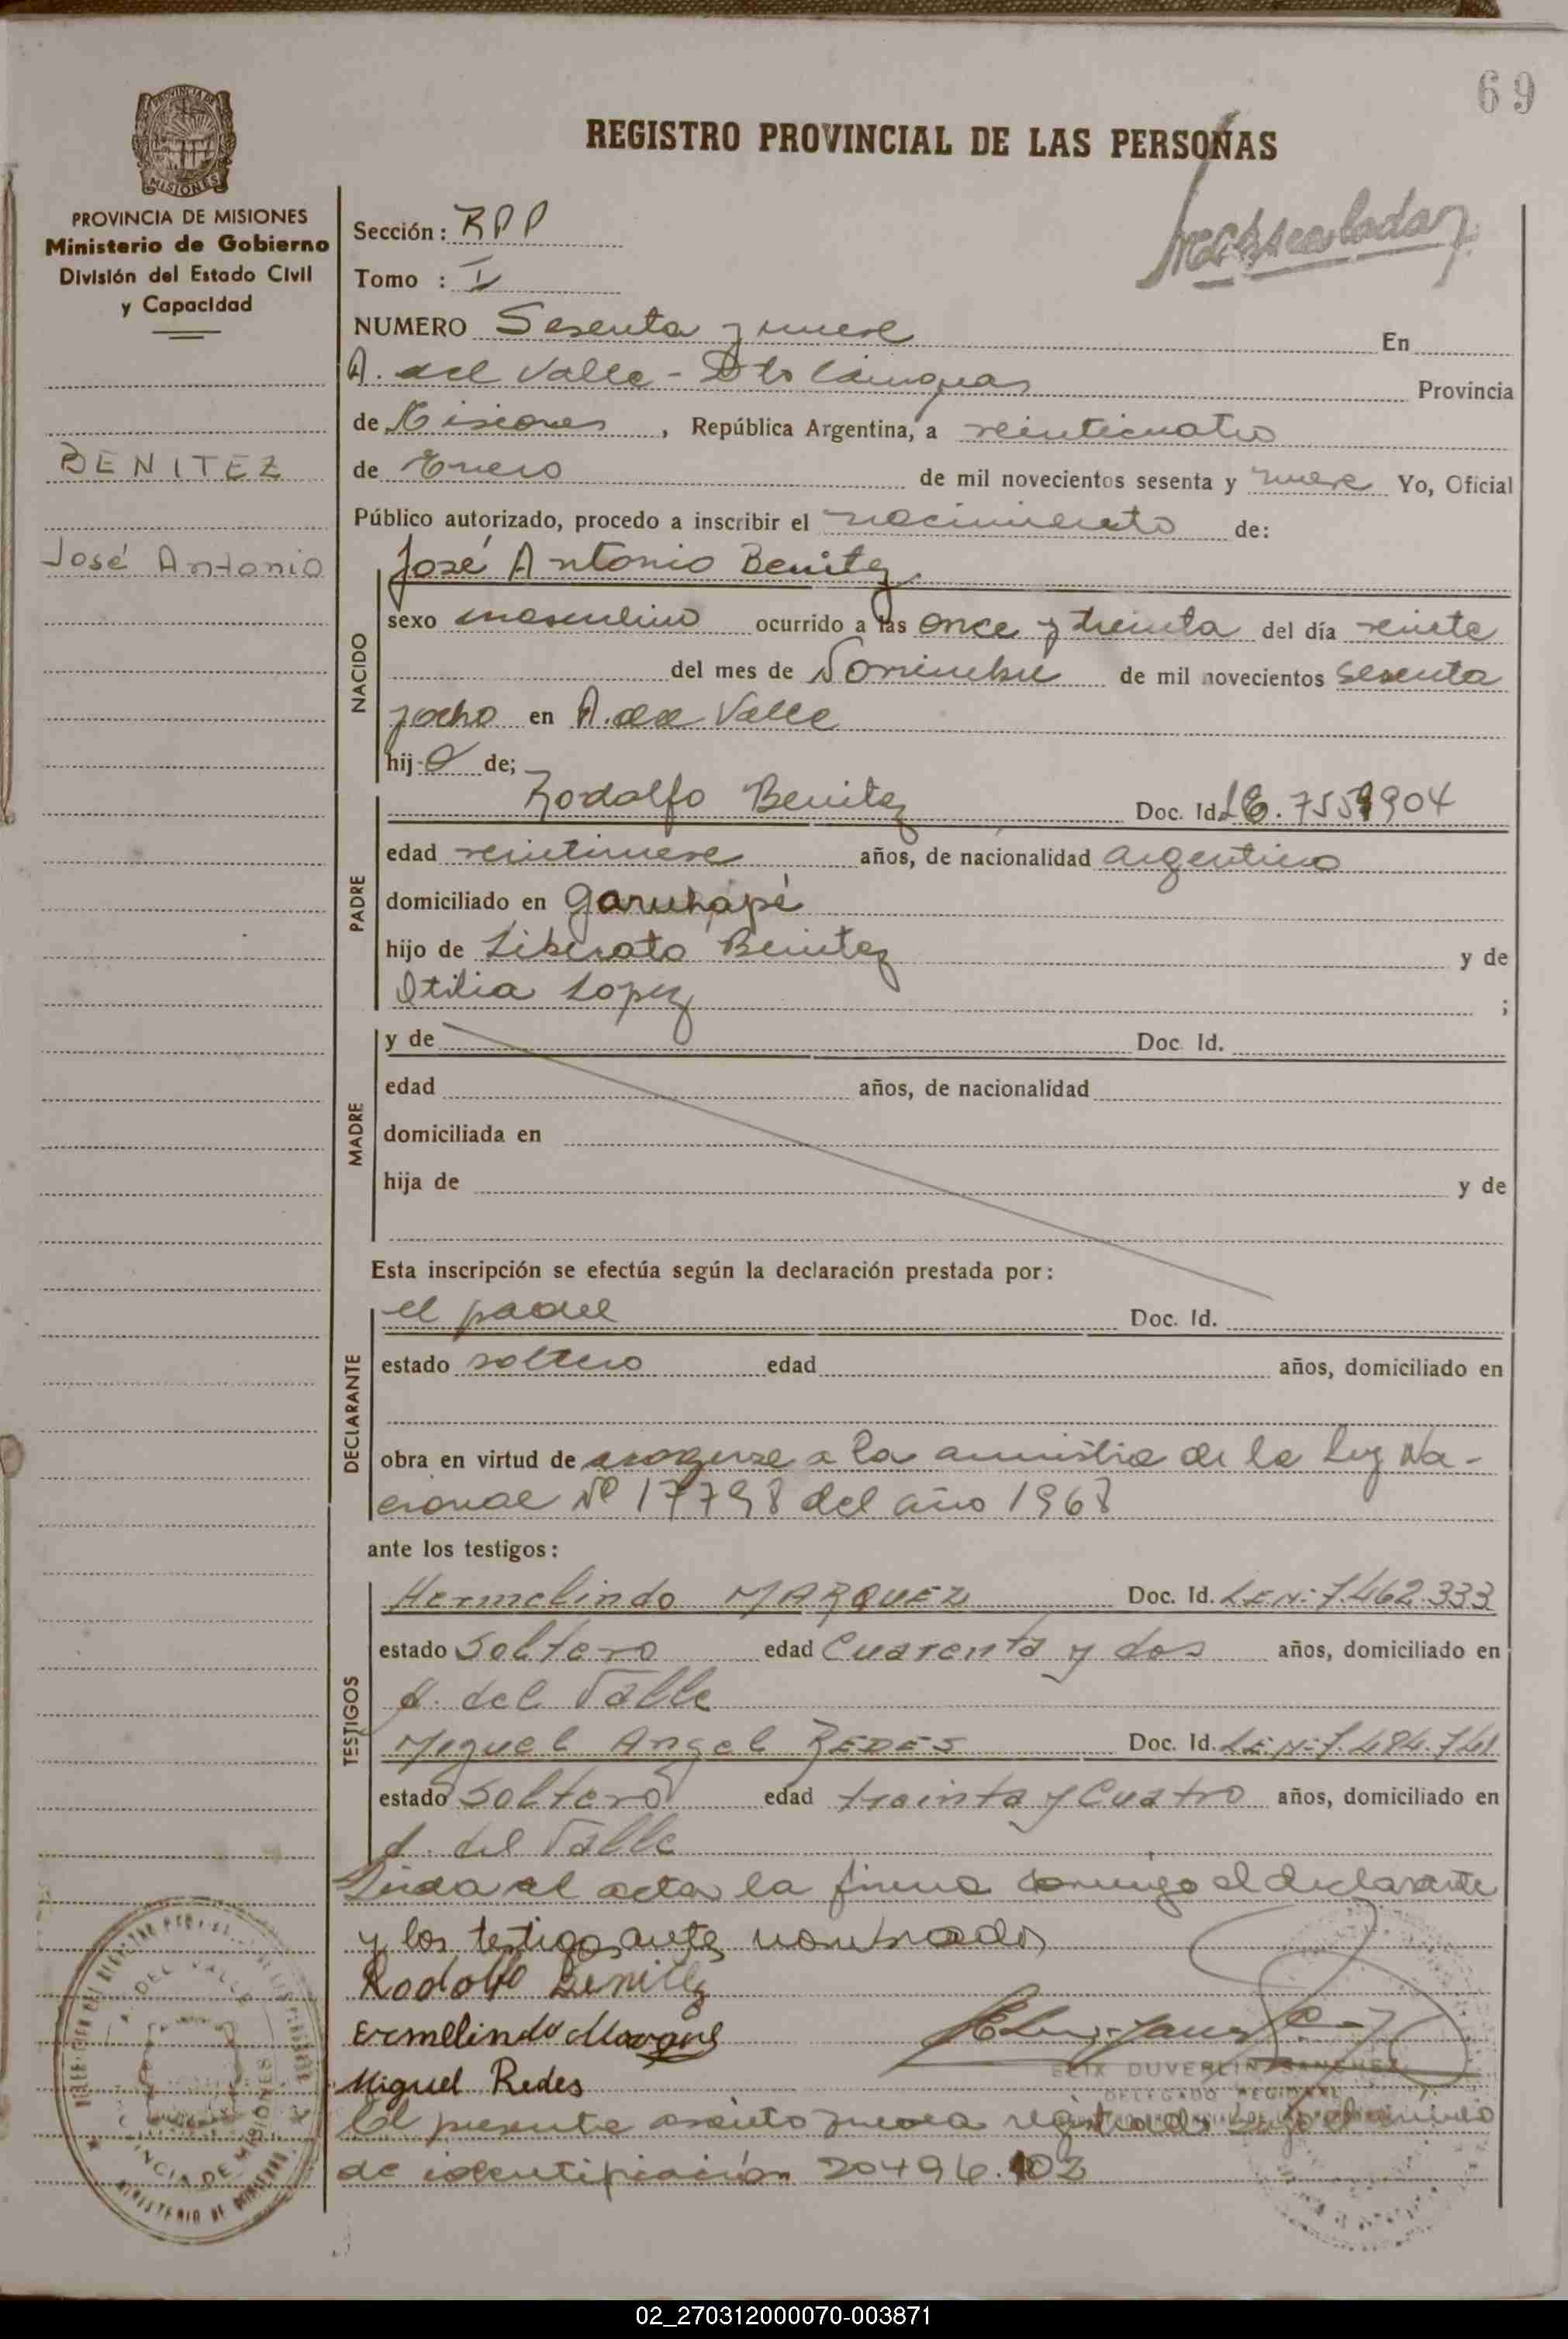 69
REGISTRO PROVINCIAL DE LAS PERSONAS
MISIONES
PROVINCIA DE MISIONES
Ministerio de Gobierno
División del Estado Civil
y Capacidad
BENITEZ
José Antonio
Sección: RPP
Tomo : I
NUMERO Sesenta y nueve En
A. del Valle - Dto Cainguas Provincia
de Misiones, República Argentina, a veinticuatro
de Enero de mil novecientos sesenta y nueve Yo, Oficial
Público autorizado, procedo a inscribir el nacimiento de:
NACIDO
José Antonio Benitez
sexo masculino ocurrido a las once y treinta del día veinte
del mes de Noviembre de mil novecientos sesenta
y ocho en A. del Valle
hijo de;
PADRE
Rodolfo Benitez Doc. Id. LE. 7559904
edad veintinueve años, de nacionalidad argentino
domiciliado en Garuhapé
hijo de Liberato Benitez y de
Otilia Lopez ;
MADRE
y de Doc. Id.
edad años, de nacionalidad
domiciliada en
hija de y de
Esta inscripción se efectúa según la declaración prestada por:
DECLARANTE
el padre Doc. Id.
estado soltero edad años, domiciliado en
obra en virtud de acogerse a la amnistia de la Ley Na-
cional Nº 17798 del año 1968
ante los testigos:
TESTIGOS
Hermelindo MARQUEZ Doc. Id. LE Nº 7.462.333
estado Soltero edad Cuarenta y dos años, domiciliado en
A. del Valle
Miguel Angel REDES Doc. Id. LE. Nº 7.484.741
estado Soltero edad treinta y Cuatro años, domiciliado en
A. del Valle
Leida el acta la firma conmigo el declarante
y los testigos antes nombrados
Rodolfo Benitez
Ermelindo Marque
Miguel Redes
DUVERLIN SANCHEZ
DELEGADO REGIONAL
A. DEL VALLE
PROVINCIA DE MISIONES
MINISTERIO DE GOBIERNO
El presente asiento queda registrado bajo el número
de identificación 20496.102
02_270312000070-003871